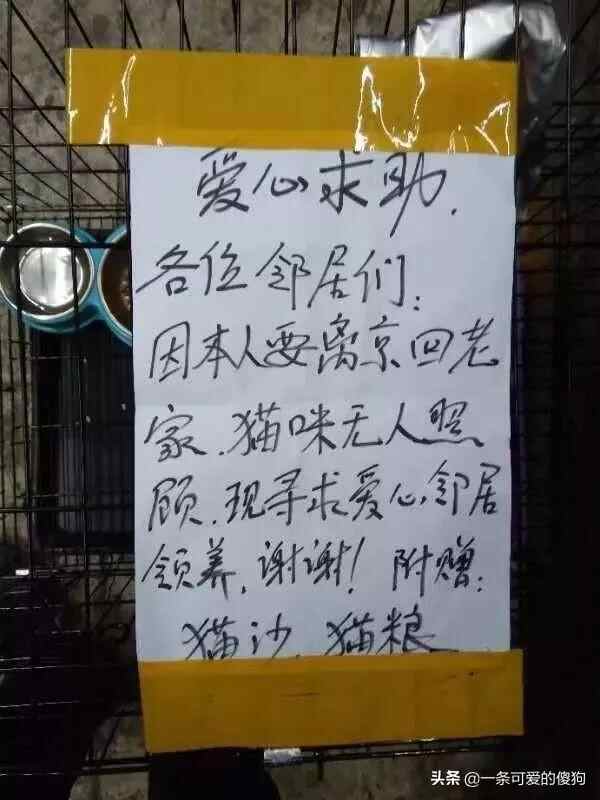 爱心求助.
各位邻居们:
因本人要离京回老
家.猫咪无人照
顾.现寻求爱心邻居
领养.谢谢! 附赠:
猫沙.猫粮
头条 @一条可爱的傻狗